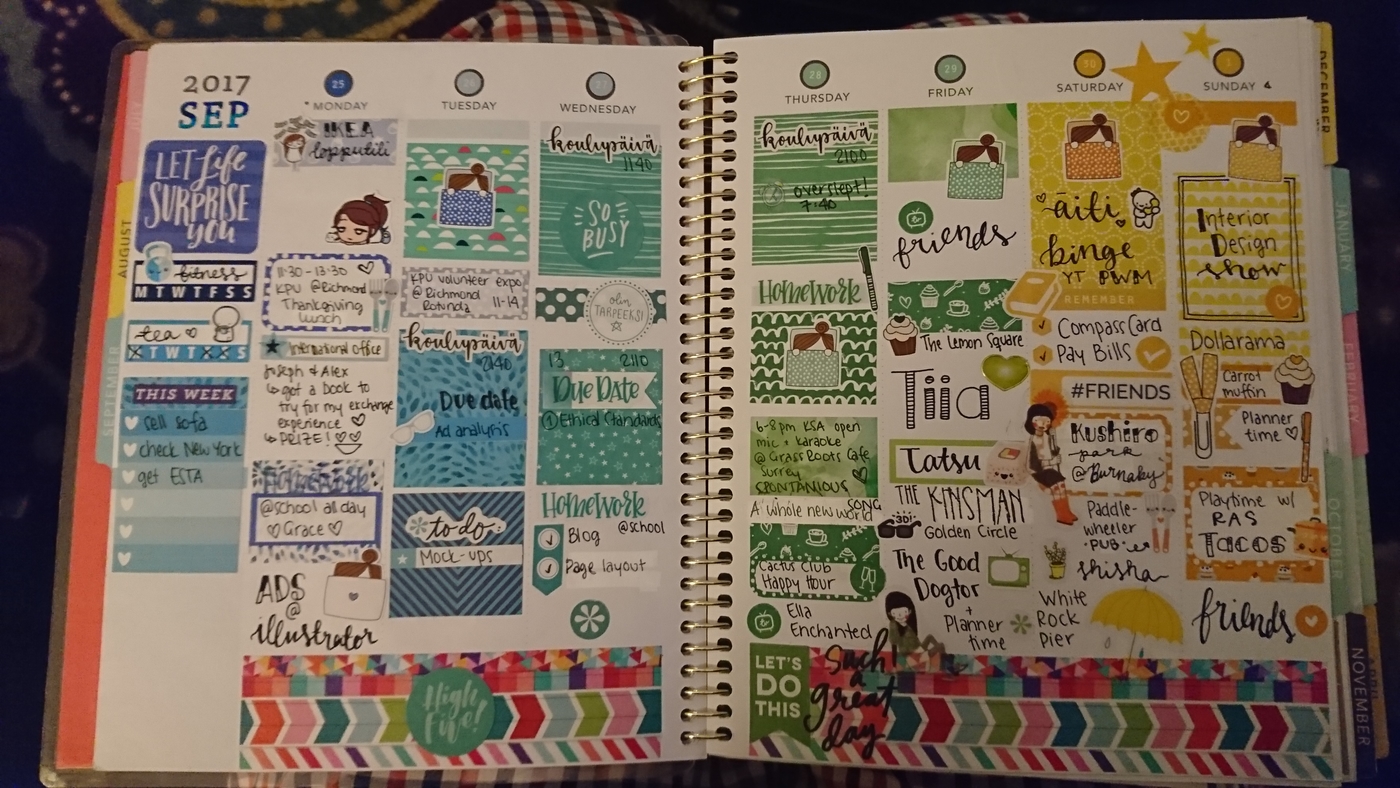 2017
SEP
LET life
SURPRISE
you
fitness
M T W T F S S
tea
T W T S
THIS WEEK
sell sofa
check New York
get ESTA
25
MONDAY
IKEA
lopputili
11:30-13:30
KPU @Richmond
Thanksgiving
lunch
International office
Joseph & Alex
got a book to
try for my exchange
experience
PRIZE!
HOMEWORK
@school all day
Grace
ADS
@
illustrator
26
TUESDAY
KPU volunteer expo
@ Richmond
Rotunda 11-14
koulupäivä
2140
Due date
Ad analysis
to do:
Mock-ups
27
WEDNESDAY
koulupäivä
1140
SO
BUSY
olin
TARPEEKSI
13 2110
DUE DATE
① Ethical Standards
HOMEWORK
@school
Blog
Page layout
High
Five!
28
THURSDAY
koulupäivä
2100
overslept!
7:40
HOMEWORK
6-8pm KSA open
mic + karaoke
@ Grass Roots Cafe
Surrey
SPONTANIOUS
SONG
A whole new world
Cactus Club
Happy Hour
Ella
Enchanted
LET'S
DO
THIS
Such
a
great
day
29
FRIDAY
friends
The Lemon Square
Tiia
Tatsu
THE KINSMAN
3D!
Golden Circle
The Good
Dogtor
+
Planner
time
30
SATURDAY
äiti
binge
YT PWM
REMEMBER
Compass Card
Pay Bills
#FRIENDS
Kushiro
park
@Burnaby
Paddle-
wheeler
PUB
shisha
White
Rock
Pier
1
SUNDAY
Interior
Design
show
Dollarama
Carrot
muffin
Planner
time
Playtime w/
RAS
Tacos
friends
AUGUST
SEPTEMBER
DECEMBER
JANUARY
FEBRUARY
OCTOBER
NOVEMBER